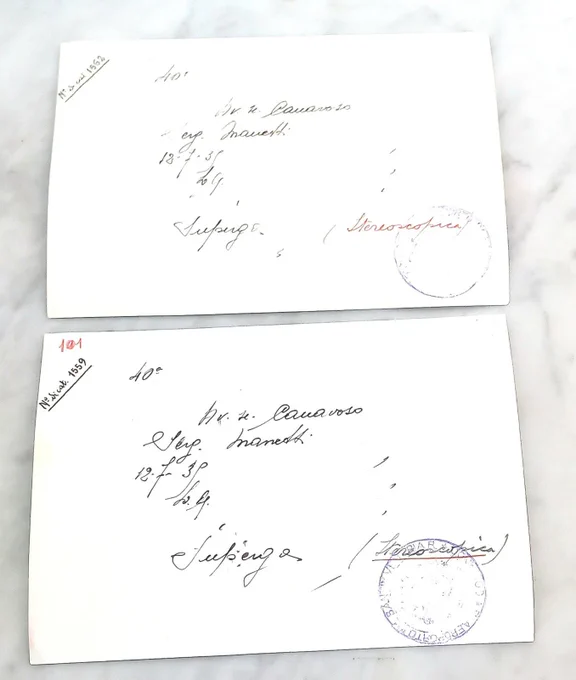 Nº di cat. 1552
40ª
Av. sc. Canavoso
Serg. Manetti
12-7-35
L.G.
Superga (Stereoscopica)
101
Nº di cat. 1559
40ª
Av. sc. Canavoso
Serg. Manetti
12-7-35
L.G.
Superga (Stereoscopica)
AEROPORTO